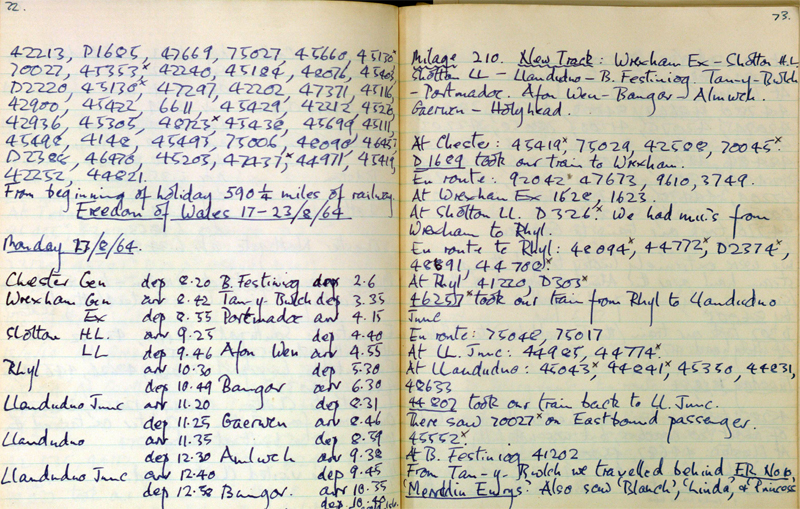 72.
42213, D1685, 47669, 75027, 45660, 45130x
70027, 45353x, 42240, 45184, 48076, 45403,
D2220, 45130x, 47297, 42202, 47371, 45116,
42900, 45422, 6611, 45429, 42212, 45220
42936, 45305, 48723x, 45438, 45699, 45111,
45498, 4148, 45493, 75006, 48090, 46457
D2386, 46470, 45203, 47437x, 44971, 45419,
42252, 44821.
From beginning of holiday 590 1/4 miles of railway.
Freedom of Wales 17-23/8/64
Monday 17/8/64.
Chester Gen dep 8.20 B. Festiniog dep 2.6
Wrexham Gen arr 8.42 Tan-y-Bwlch dep 3.35
Ex dep 8.55 Portmadoc arr 4.15
Shotton H.L. arr 9.25 dep 4.40
LL dep 9.46 Afon Wen arr 4.55
Rhyl arr 10.30 dep 5.30
dep 10.49 Bangor arr 6.30
Llandudno Junc arr 11.20 dep 8.31
dep 11.25 Gaerwen arr 8.46
Llandudno arr 11.35 dep 8.59
dep 12.30 Amlwch arr 9.38
Llandudno Junc arr 12.40 dep 9.45
dep 12.58 Bangor. arr 10.35
dep 10.40
73.
Milage 210. New Track: Wrexham Ex - Shotton H.L.
Shotton LL - Llandudno - B. Festiniog. Tan-y-Bwlch
- Portmadoc. Afon Wen - Bangor - Amlwch.
Gaerwen - Holyhead.
At Chester: 45419x, 75029, 42588, 70045x.
D1689 took our train to Wrexham.
En route: 92042x 47673, 9610, 3749.
At Wrexham Ex 1628, 1623.
At Shotton LL. D326x. We had mu's from
Wrexham to Rhyl.
En route to Rhyl: 48094x, 44772x, D2374x,
48691, 44708x.
At Rhyl 41220, D303x
46257x took our train from Rhyl to Llandudno
Junc
En route: 75048, 75017
At LL. Junc: 44985, 44774x.
At Llandudno: 45043x, 44841x, 45350, 44831,
48633
44807 took our train back to Ll. Junc.
There saw 70027x on Eastbound passenger.
45552x.
At B. Festiniog 41202
From Tan-y-Bwlch we travelled behind FR No 10,
'Merddin Emrys'. Also saw 'Blanch', 'Linda', & 'Princess